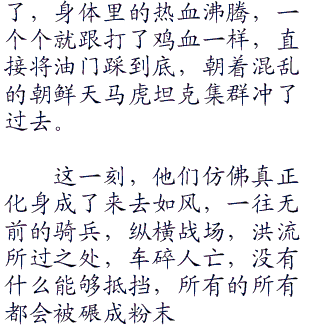 了，身体里的热血沸腾，一
个个就跟打了鸡血一样，直
接将油门踩到底，朝着混乱
的朝鲜天马虎坦克集群冲了
过去。
这一刻，他们仿佛真正
化身成了来去如风，一往无
前的骑兵，纵横战场，洪流
所过之处，车碎人亡，没有
什么能够抵挡，所有的所有
都会被碾成粉末